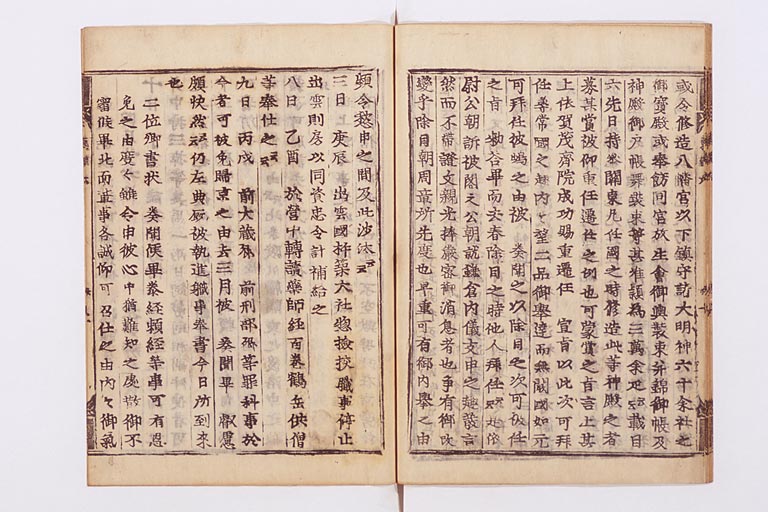 或令修造八幡宮以下鎮守諏方大明神六十余社之
御寶殿或奉餝同宮放生會御輿装束并錦御帳及
神殿御戸帳舞装束等其准頴為三万余疋云云載日
六先日持参關東凡任國之時修造此等神殿之者
募其賞被仰重任遷任之例也可蒙賞之旨言上其
上依賀茂齊院成功賜重遷任 宣旨以此次可拜
任尋常國之 内々望二品御擧達而無闕國如元
可拜任 之由被 奏聞之以除目之次可仰任
之旨 勘合畢而安春除目之時他人拜任云云
尉公朝訴被
然而不帶證文親光捧厳密御消息者也争有御改
變乎除目朝周章所先度也早重可有御内擧之由
頻令愁申之間及此沙汰云云
三日 庚辰 出雲國杵築大社惣撿挍職事停止
出雲則房以同資忠令計補給之
八日 乙酉 於營中轉讀藥師経百巻鶴岳供僧
等奉仕之云云
九日 丙戌 前大蔵 前刑部 等罪科事於
今者可被免歸京之由去三月被 奏聞畢 叡慮
頗快然云云仍左典厩被執進職事奉書今日所到来
也
十二位卿書状 奏聞候畢巻経頼経等事可有恩
免之由度々雖令申彼心中猶難知之度 御不
審候畢此両 事各誠仰可召仕之由内々御氣